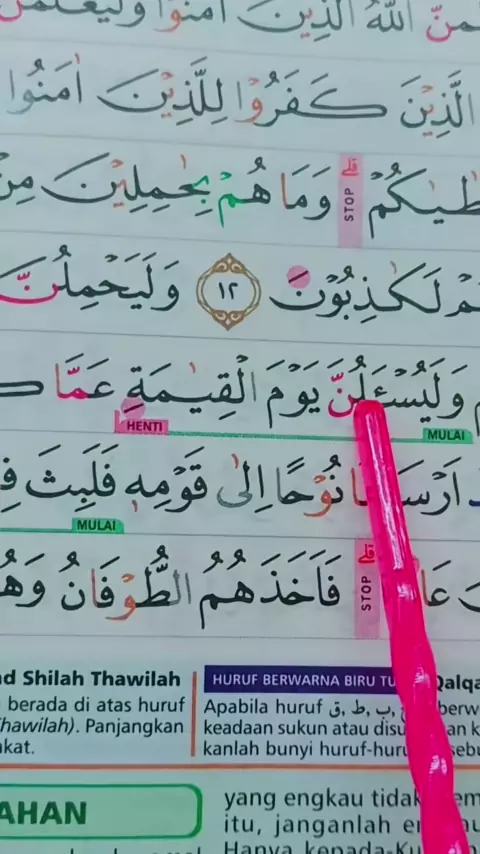 مَنَّ اللّٰهُ الَّذِيْنَ اٰمَنُوْا وَلَيَعْلَمَنَّ
الَّذِيْنَ كَفَرُوْا لِلَّذِيْنَ اٰمَنُوا
طٰيٰكُمْ ۗ STOP وَمَا هُمْ بِحٰمِلِيْنَ مِنْ
لَكٰذِبُوْنَ ١٢ وَلَيَحْمِلُنَّ
وَلَيُسْـَٔلُنَّ يَوْمَ الْقِيٰمَةِ عَمَّا
MULAI HENTI
نُوْحًا اِلٰى قَوْمِهٖ فَلَبِثَ
MULAI
STOP فَاَخَذَهُمُ الطُّوْفَانُ وَهُ
d Shilah Thawilah
berada di atas huruf
Thawilah). Panjangkan
kat.
HURUF BERWARNA BIRU TU
Apabila huruf ق, ط, ب,
keadaan sukun atau
kanlah bunyi huruf-huru
AHAN
yang engkau tidak
itu, janganlah
Hanya kepada-Ku